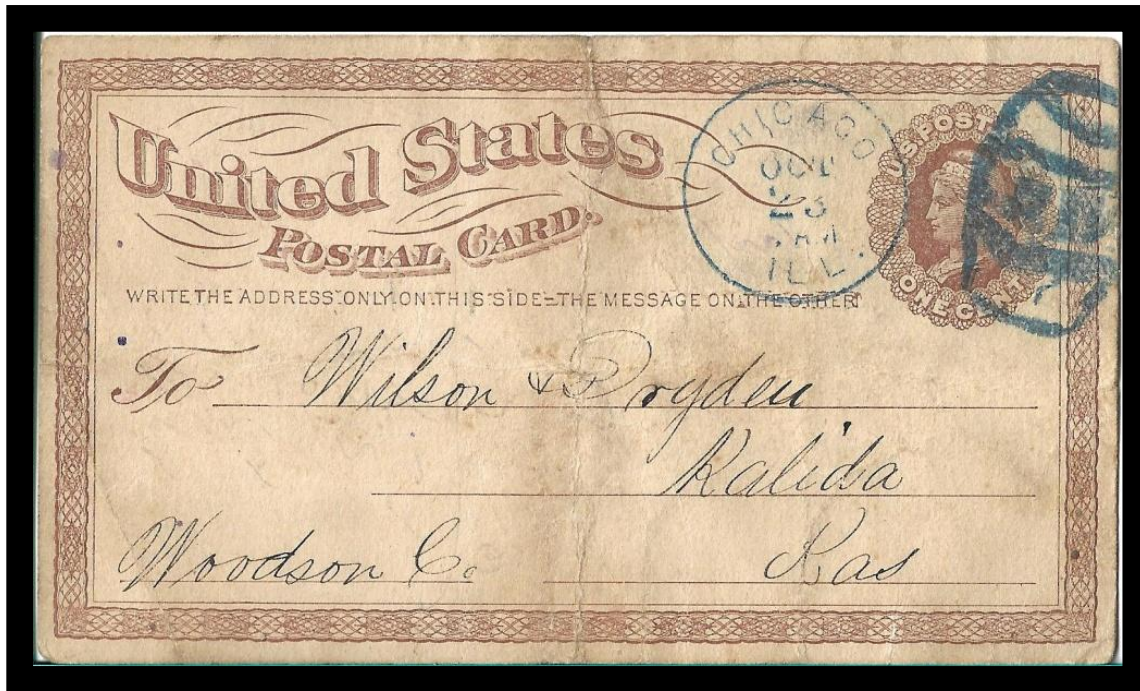 United States
POSTAL CARD.
CHICAGO
OCT
23
AM
ILL.
U.S. POSTAGE
ONE CENT
WRITE THE ADDRESS ONLY ON THIS SIDE-THE MESSAGE ON THE OTHER
To Wilson & Dryden
Kalida
Woodson Co. Kas